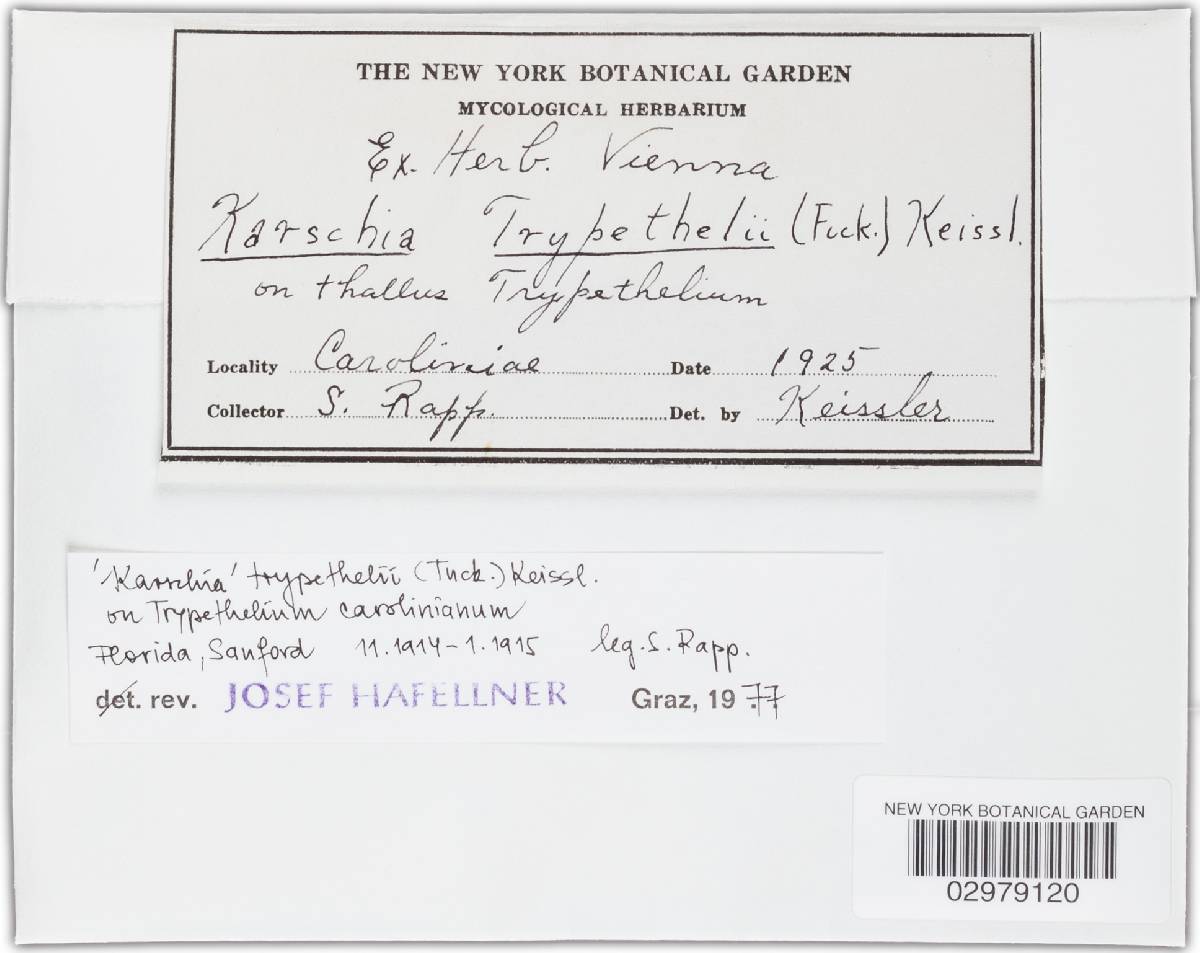 THE NEW YORK BOTANICAL GARDEN
MYCOLOGICAL HERBARIUM
Ex. Herb. Vienna
Karschia Trypethelii (Fuck.) Keissl.
on thallus Trypethelium
Locality Caroliniae Date 1925
Collector S. Rapp. Det. by Keissler
'Karschia' trypethelii (Tuck.) Keissl.
on Trypethelium carolinianum
Florida, Sanford 11.1914-1.1915 leg. S. Rapp.
det. rev. JOSEF HAFELLNER Graz, 1977
NEW YORK BOTANICAL GARDEN
02979120